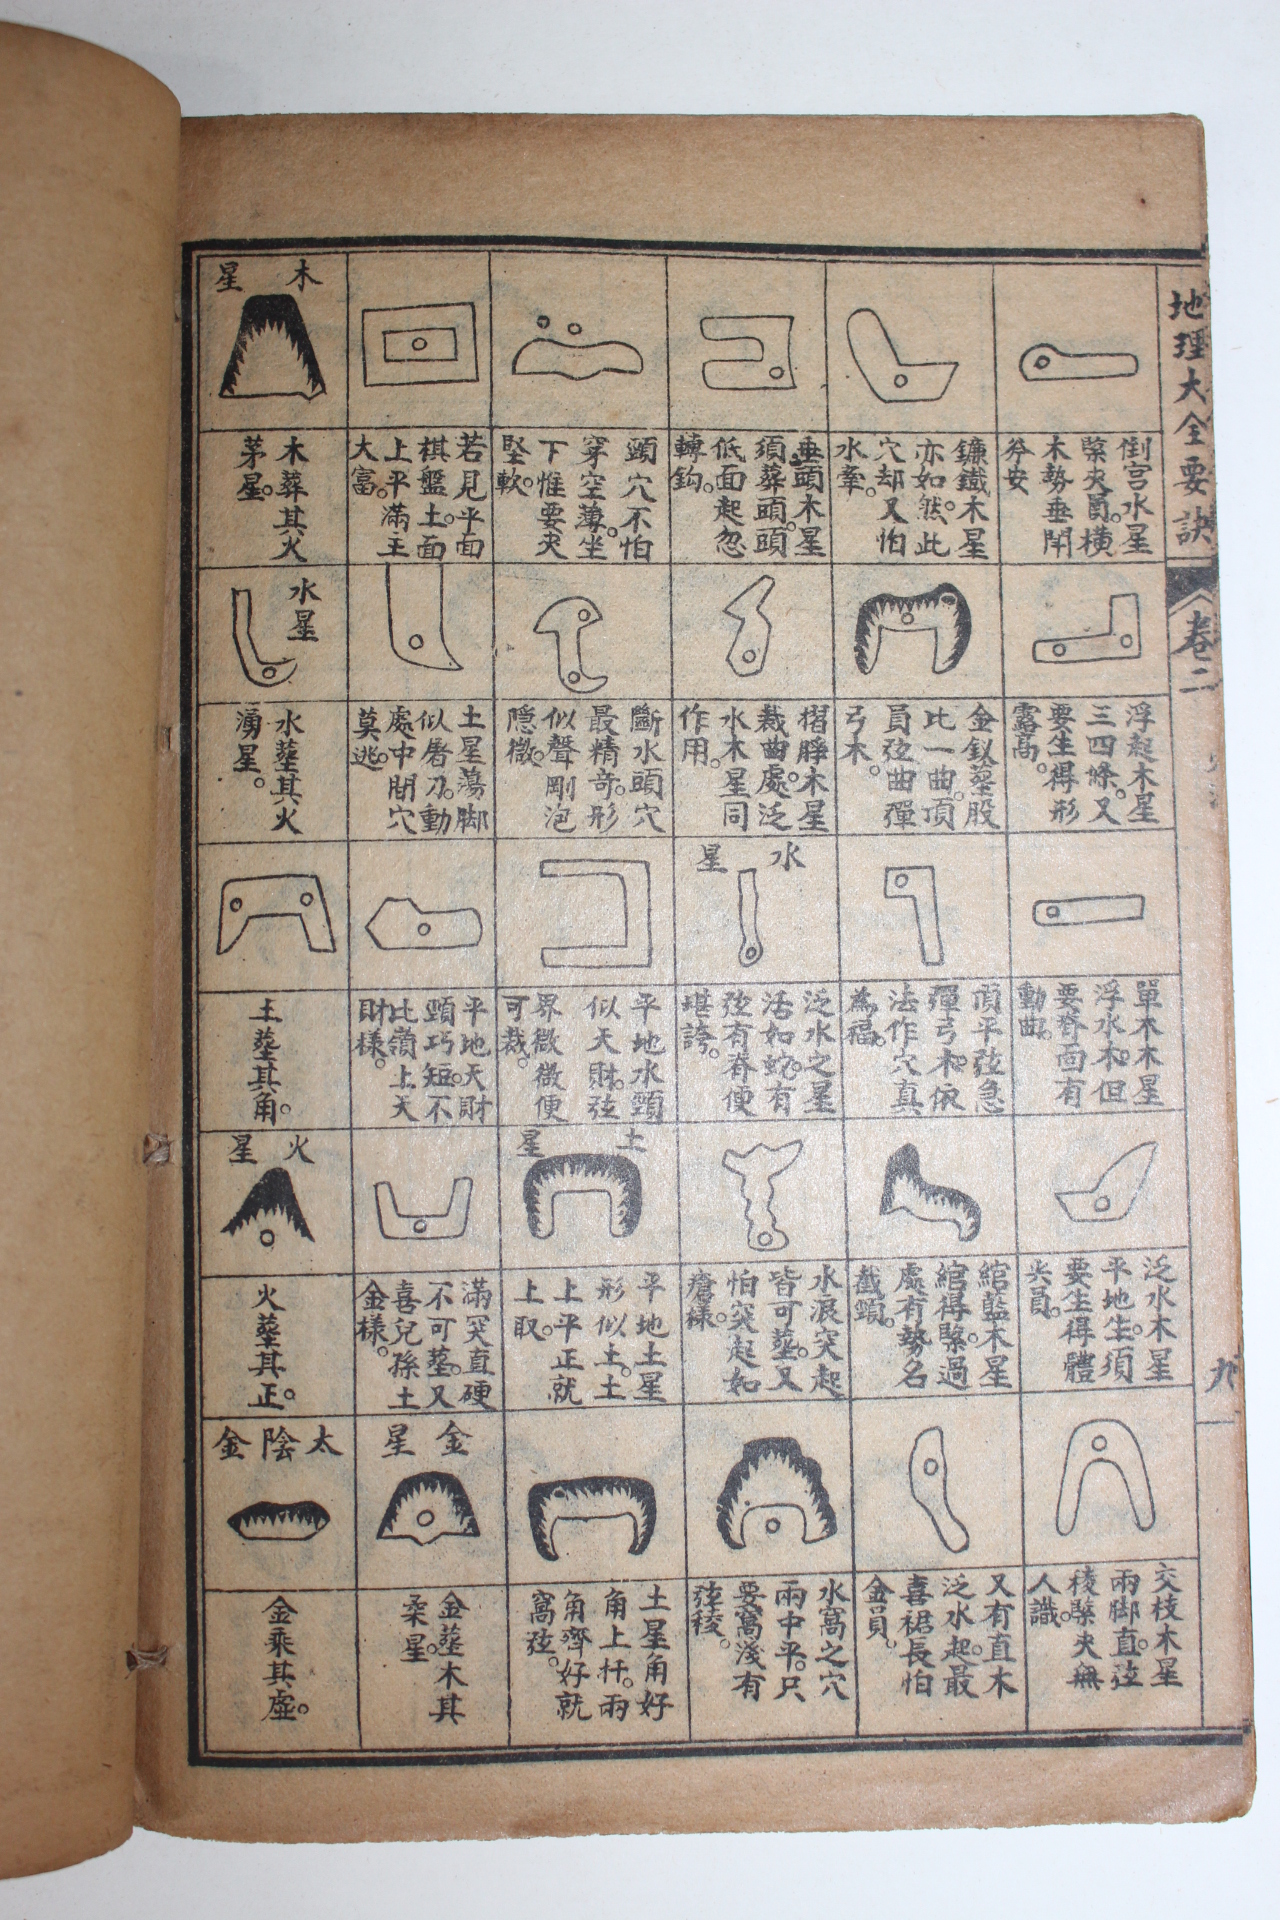 地理大全要訣
卷二
九
倒宮水星
緊夾茵橫
木勢垂開
穷安
鐮鐵木星
亦如然此
穴却又怕
水牽。
垂頭木星
須葬頭。頭
低面起忽
轉鈎。
頭穴不怕
穿空薄。坐
下惟要夾
堅軟。
若見平面
棋盤土。面
上平滿主
大富。
木星
木葬其火
茅星。
浮起木星
三四條。又
要生得形
露高。
金釵塟股
比一曲。項
員弦曲彈
弓木。
摺脚木星
裁曲處。泛
水木星同
作用。
斷水頭穴
最精奇。形
似聲剛泡
隱微。
土星蕩脚
似屠刀。動
處中間穴
莫逃。
水星
水塟其火
湧星。
單木木星
浮水木。但
要脊面有
動曲。
頂平弦急
彈弓木。依
法作穴真
為福。
水星
泛水之星
活如蛇。有
弦有脊便
堪誇。
平地水頸
似天財。弦
界微微便
可裁。
平地天財
頸巧短。不
比嶺上天
財樣。
土塟其角。
泛水木星
平地生。須
要生得體
尖員。
綰藍木星
綰得緊。過
處有勢名
截頸。
水浪突起
皆可塟。又
怕突起如
瘡樣。
土星
平地土星
形似土。土
上平正就
上取。
滿突直硬
不可塟。又
喜兒孫土
金樣。
火星
火塟其正。
交枝木星
兩脚直。弦
稜緊夾無
人識。
又有直木
泛水起。最
喜裙長怕
金員。
水窩之穴
兩中平。只
要窩淺有
弦稜。
土星角好
角上扦。兩
角齊好就
窩弦。
金星
金塟木其
柔星。
太陰金
金乘其虛。